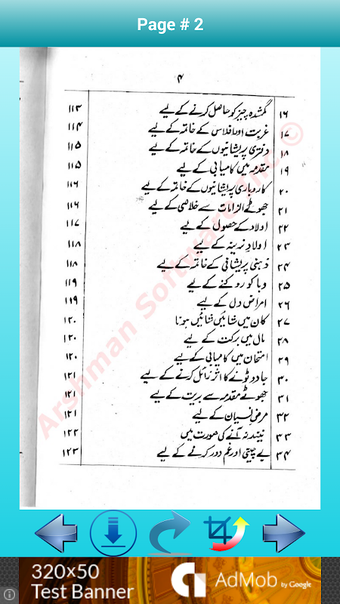 Page # 2
۴
۱۶ گمشدہ چیز کو حاصل کرنے کے لیے ۱۱۳
۱۷ غربت اور افلاس کے خاتمہ کے لیے ۱۱۴
۱۸ دفتری پریشانیوں کے خاتمہ کے لیے ۱۱۵
۱۹ مقدمہ میں کامیابی کے لیے ۱۱۵
۲۰ کاروباری پریشانیوں کے خاتمہ کے لیے ۱۱۶
۲۱ جھوٹے الزامات سے خلاصی کے لیے ۱۱۶
۲۲ اولاد کے حصول کے لیے ۱۱۷
۲۳ اولاد نرینہ کے لیے ۱۱۸
۲۴ ذہنی پریشانی کے خاتمہ کے لیے ۱۱۸
۲۵ وبا کو روکنے کے لیے ۱۱۹
۲۶ امراض دل کے لیے ۱۱۹
۲۷ کان میں شائیں شائیں ہونا ۱۲۰
۲۸ مال میں برکت کے لیے ۱۲۰
۲۹ امتحان میں کامیابی کے لیے ۱۲۰
۳۰ جادو ٹونے کا اثر زائل کرنے کے لیے ۱۲۱
۳۱ جھوٹے مقدمہ سے بریت کے لیے ۱۲۱
۳۲ مرض نسیان کے لیے ۱۲۱
۳۳ نیند نہ آنے کی صورت میں ۱۲۲
۳۴ بے چینی اور غم دور کرنے کے لیے ۱۲۳
320x50
Test Banner
AdMob by Google